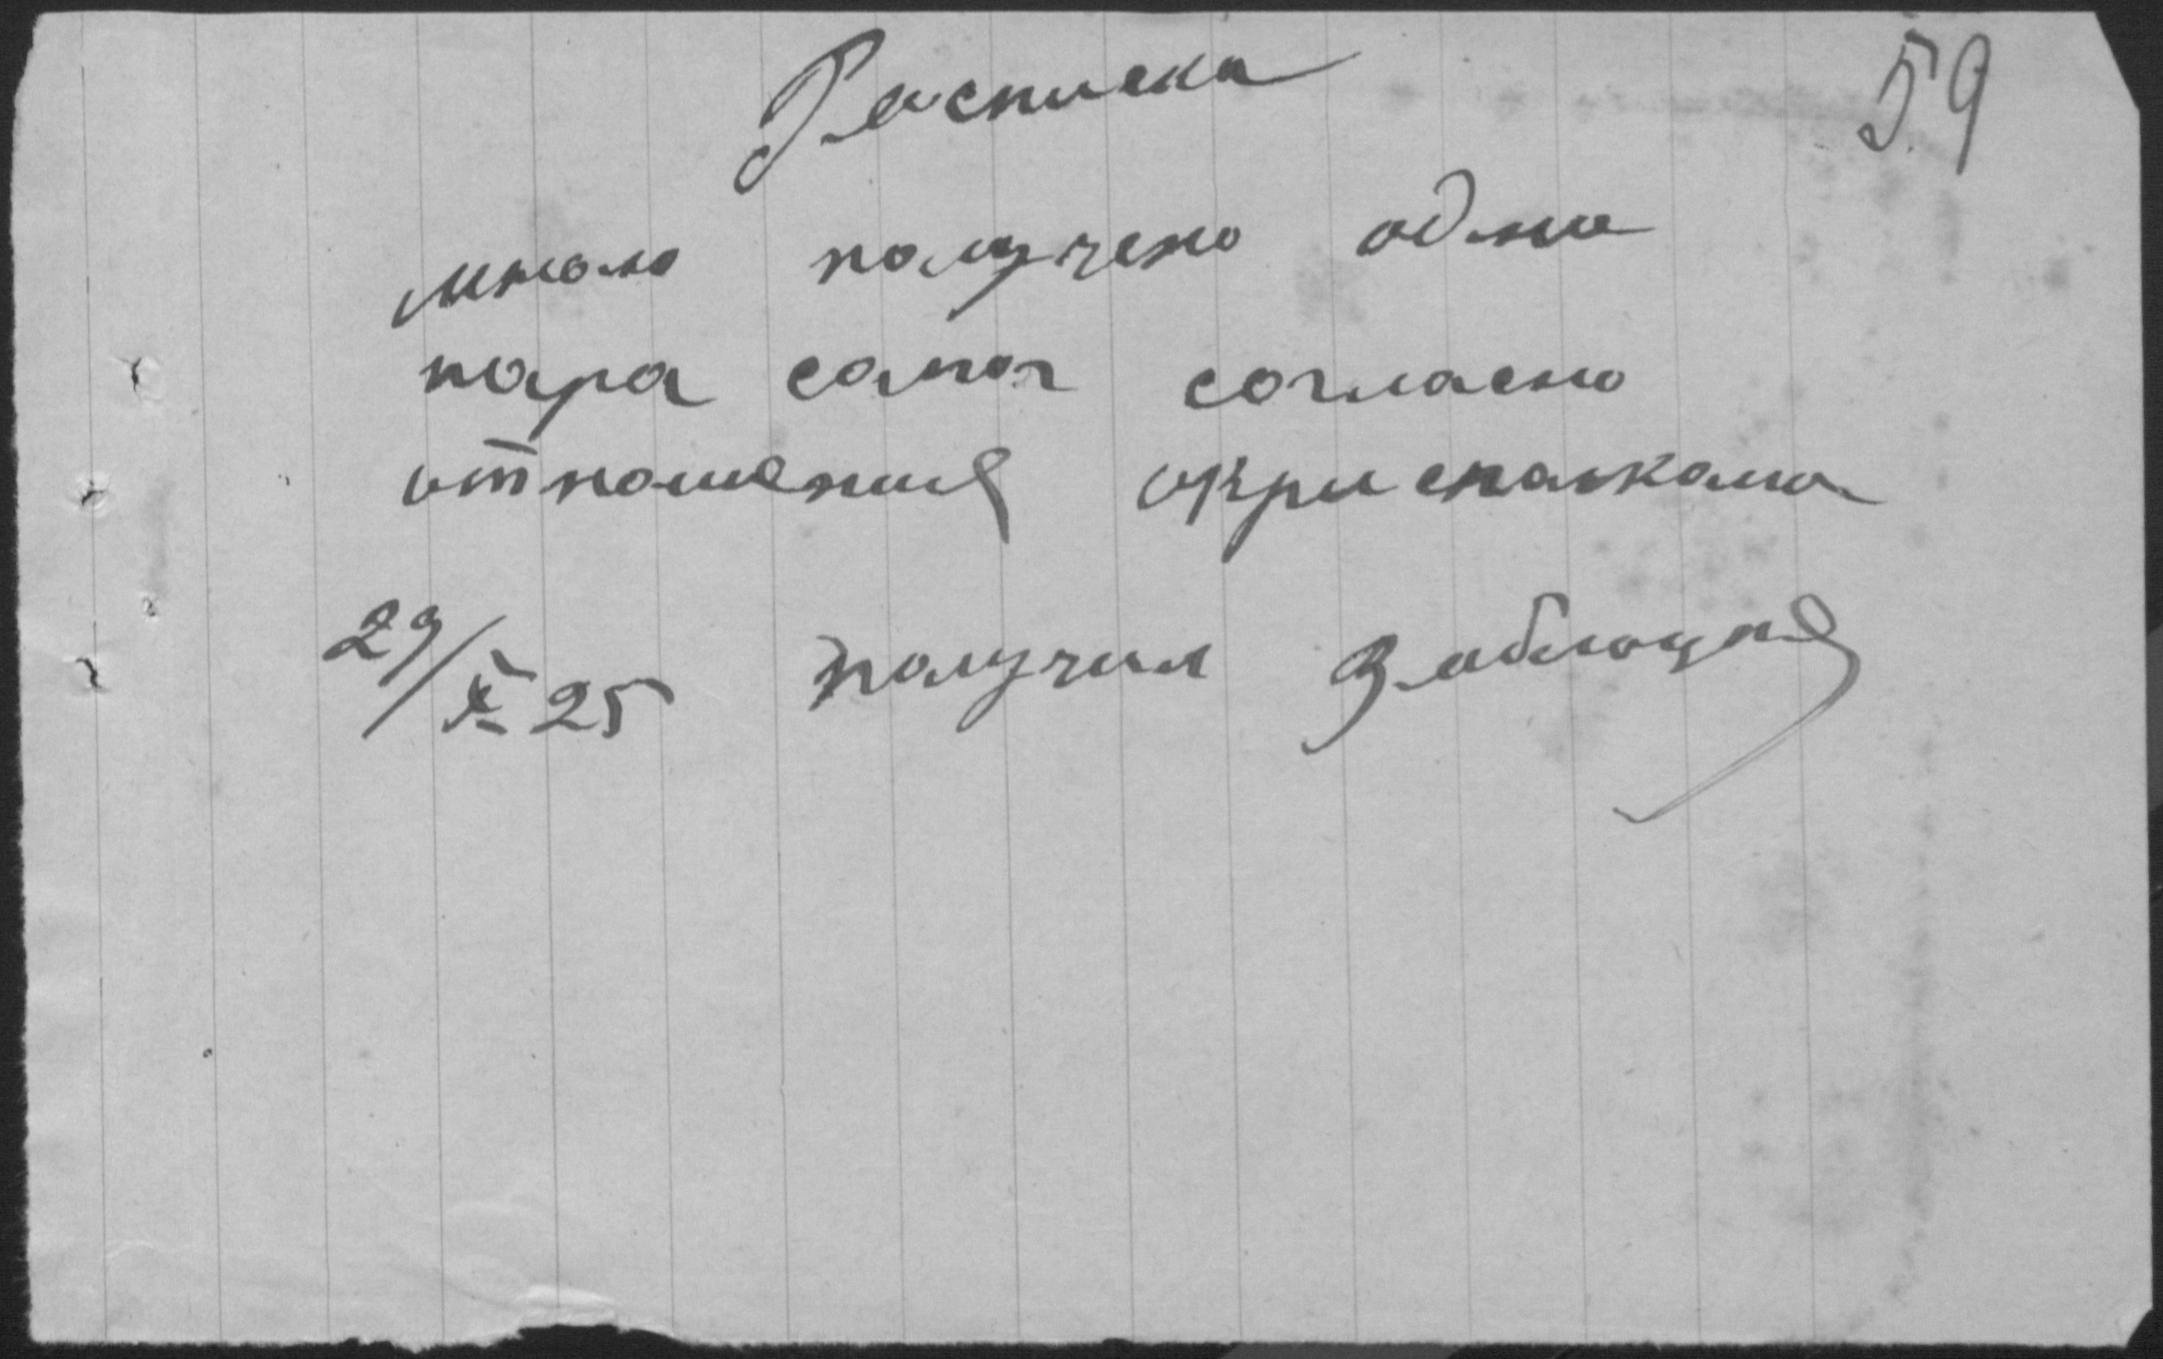 59
Расписка
мною получено одна
пара сапог согласно
отношения окрисполкома
29/X 25 получил Заблоцкий